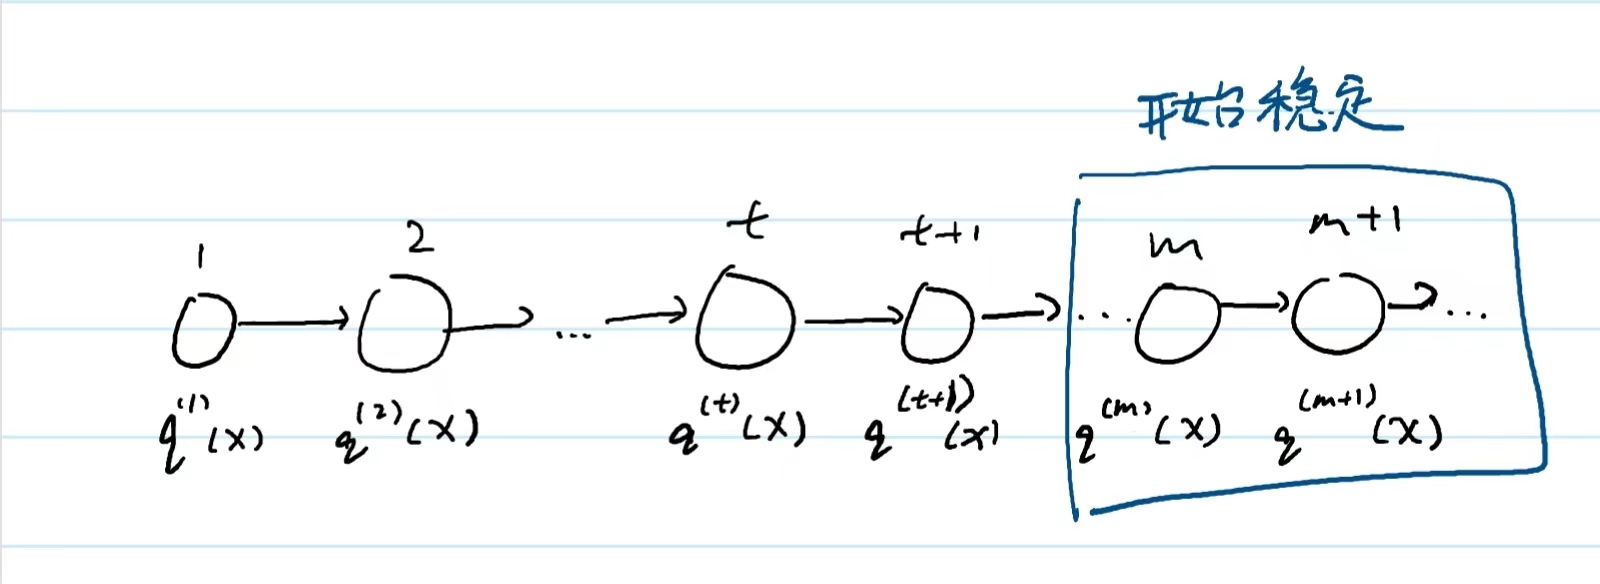 开始稳定
1 2 t t+1 m m+1
... ... ...
q^{(1)}(x) q^{(2)}(x) q^{(t)}(x) q^{(t+1)}(x) q^{(m)}(x) q^{(m+1)}(x)